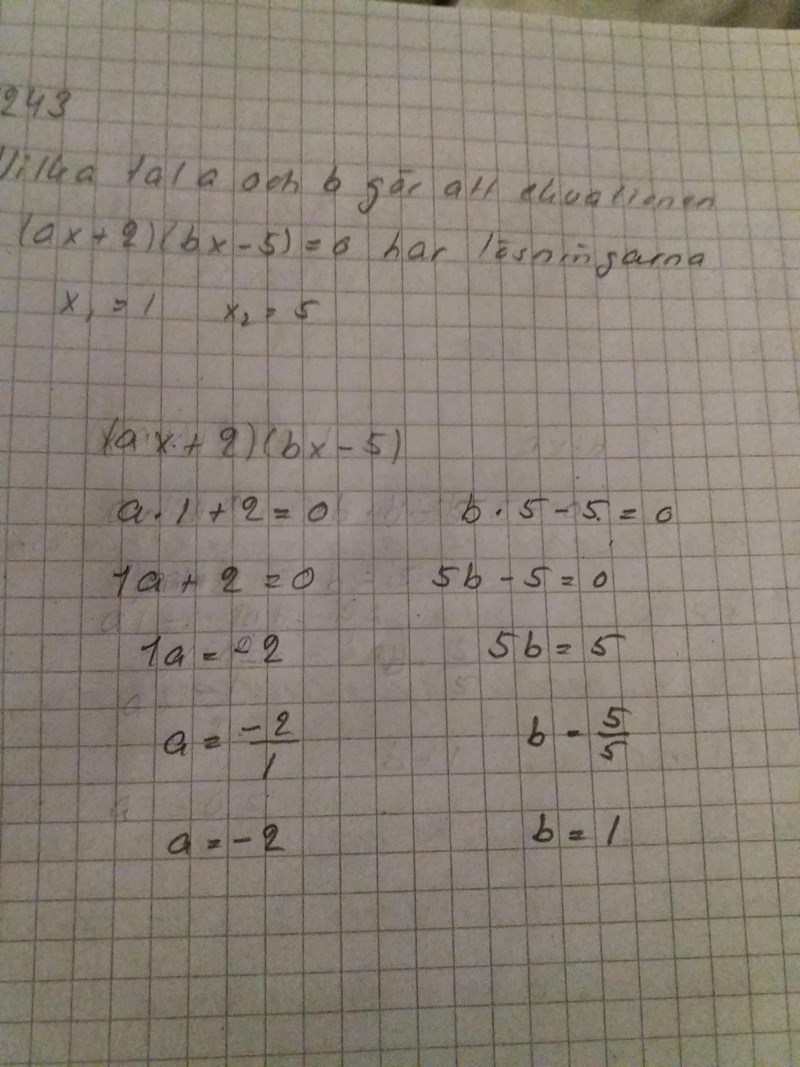 243
Vilka tal a och b gör att ekvationen
(ax + 2)(bx - 5) = 0 har lösningarna
x₁ = 1 x₂ = 5
(a·x + 2)(bx - 5)
a · 1 + 2 = 0 b · 5 - 5 = 0
1a + 2 = 0 5b - 5 = 0
1a = -2 5b = 5
a = -2/1 b = 5/5
a = -2 b = 1